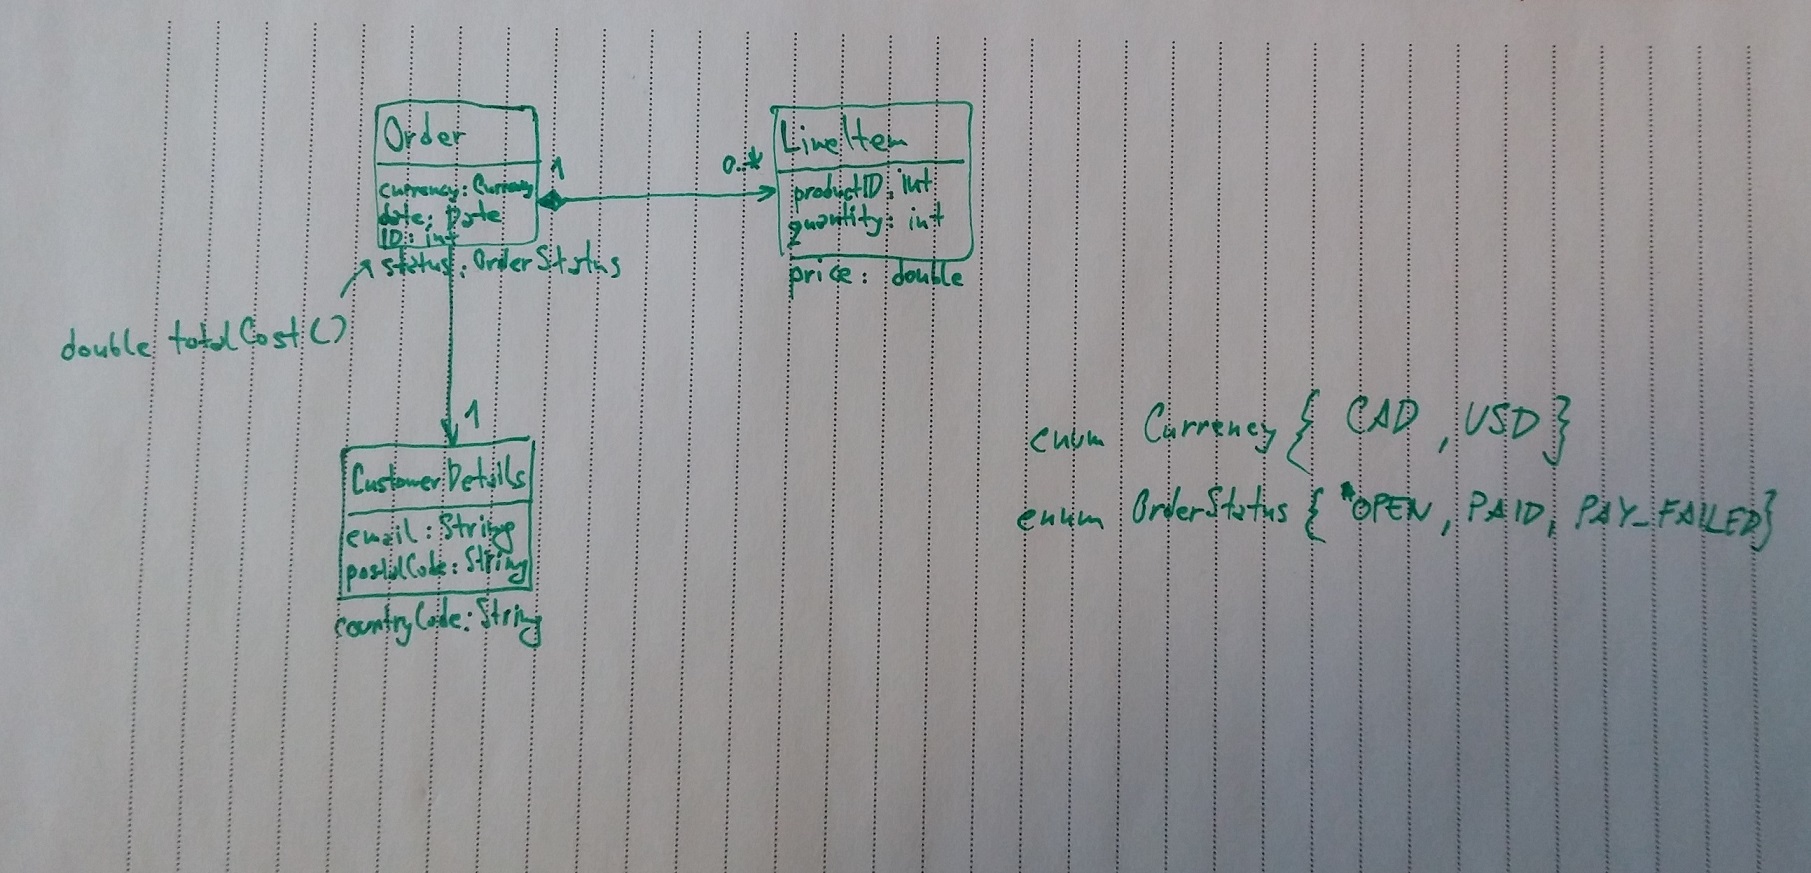 Order
currency: Currency
date: Date
ID: int
status: OrderStatus
double totalCost()
1
0..*
LineItem
productID: int
quantity: int
price: double
1
CustomerDetails
email: String
postalCode: String
countryCode: String
enum Currency { CAD, USD}
enum OrderStatus { OPEN, PAID, PAY_FAILED}